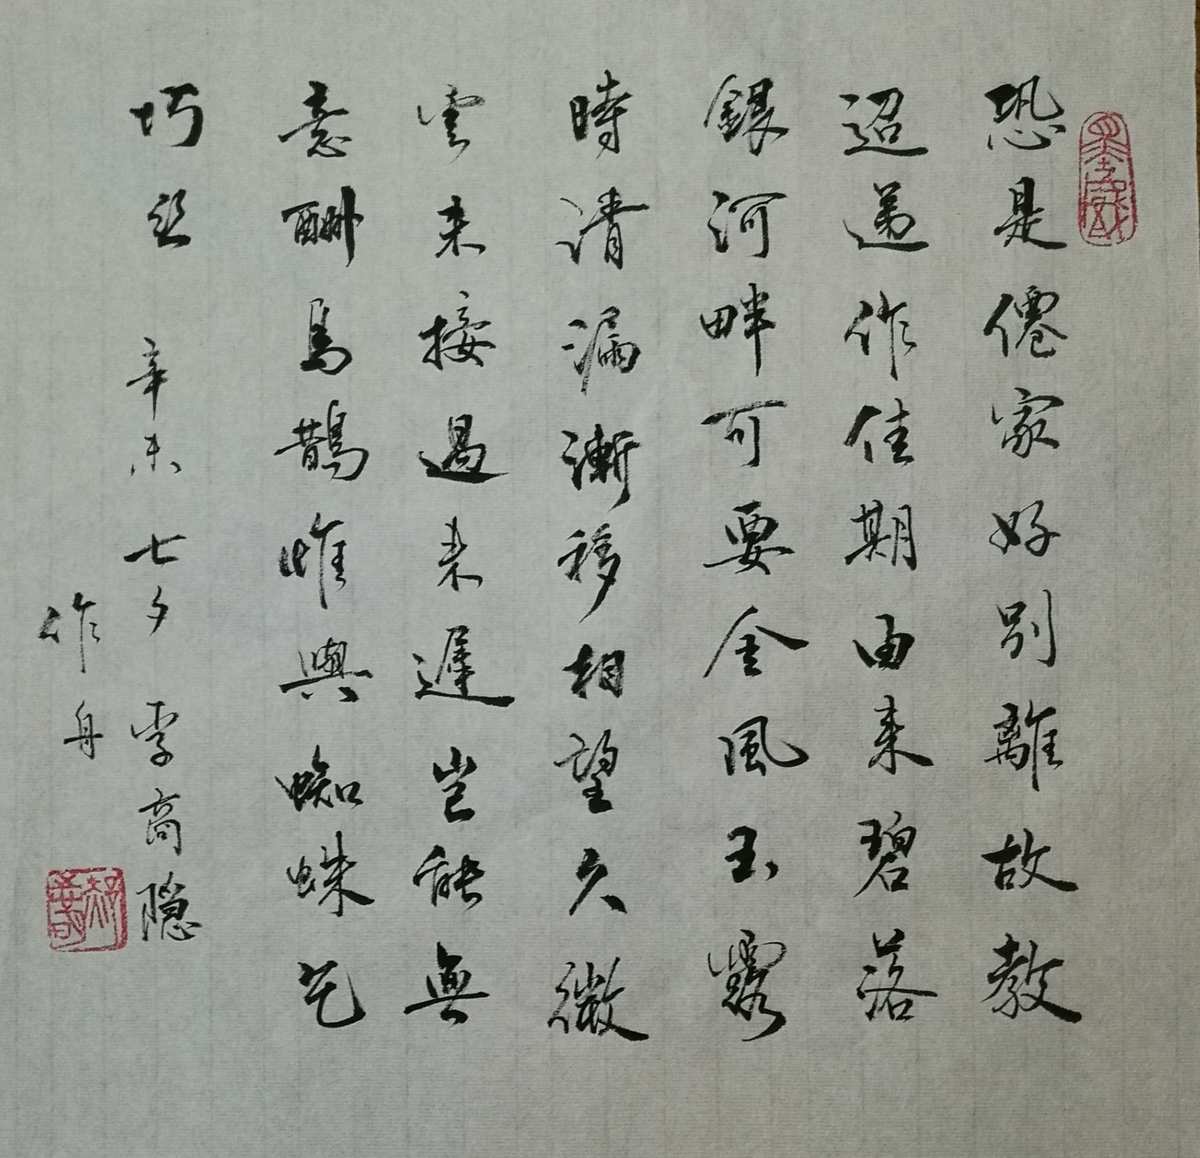 恐是僊家好別離故教
迢遞作佳期由来碧落
銀河畔可要金風玉露
時清漏漸移相望久微
雲未接過来遲豈能無
意酬烏鵲惟與蜘蛛乞
巧丝 辛未七夕 李商隐
作舟